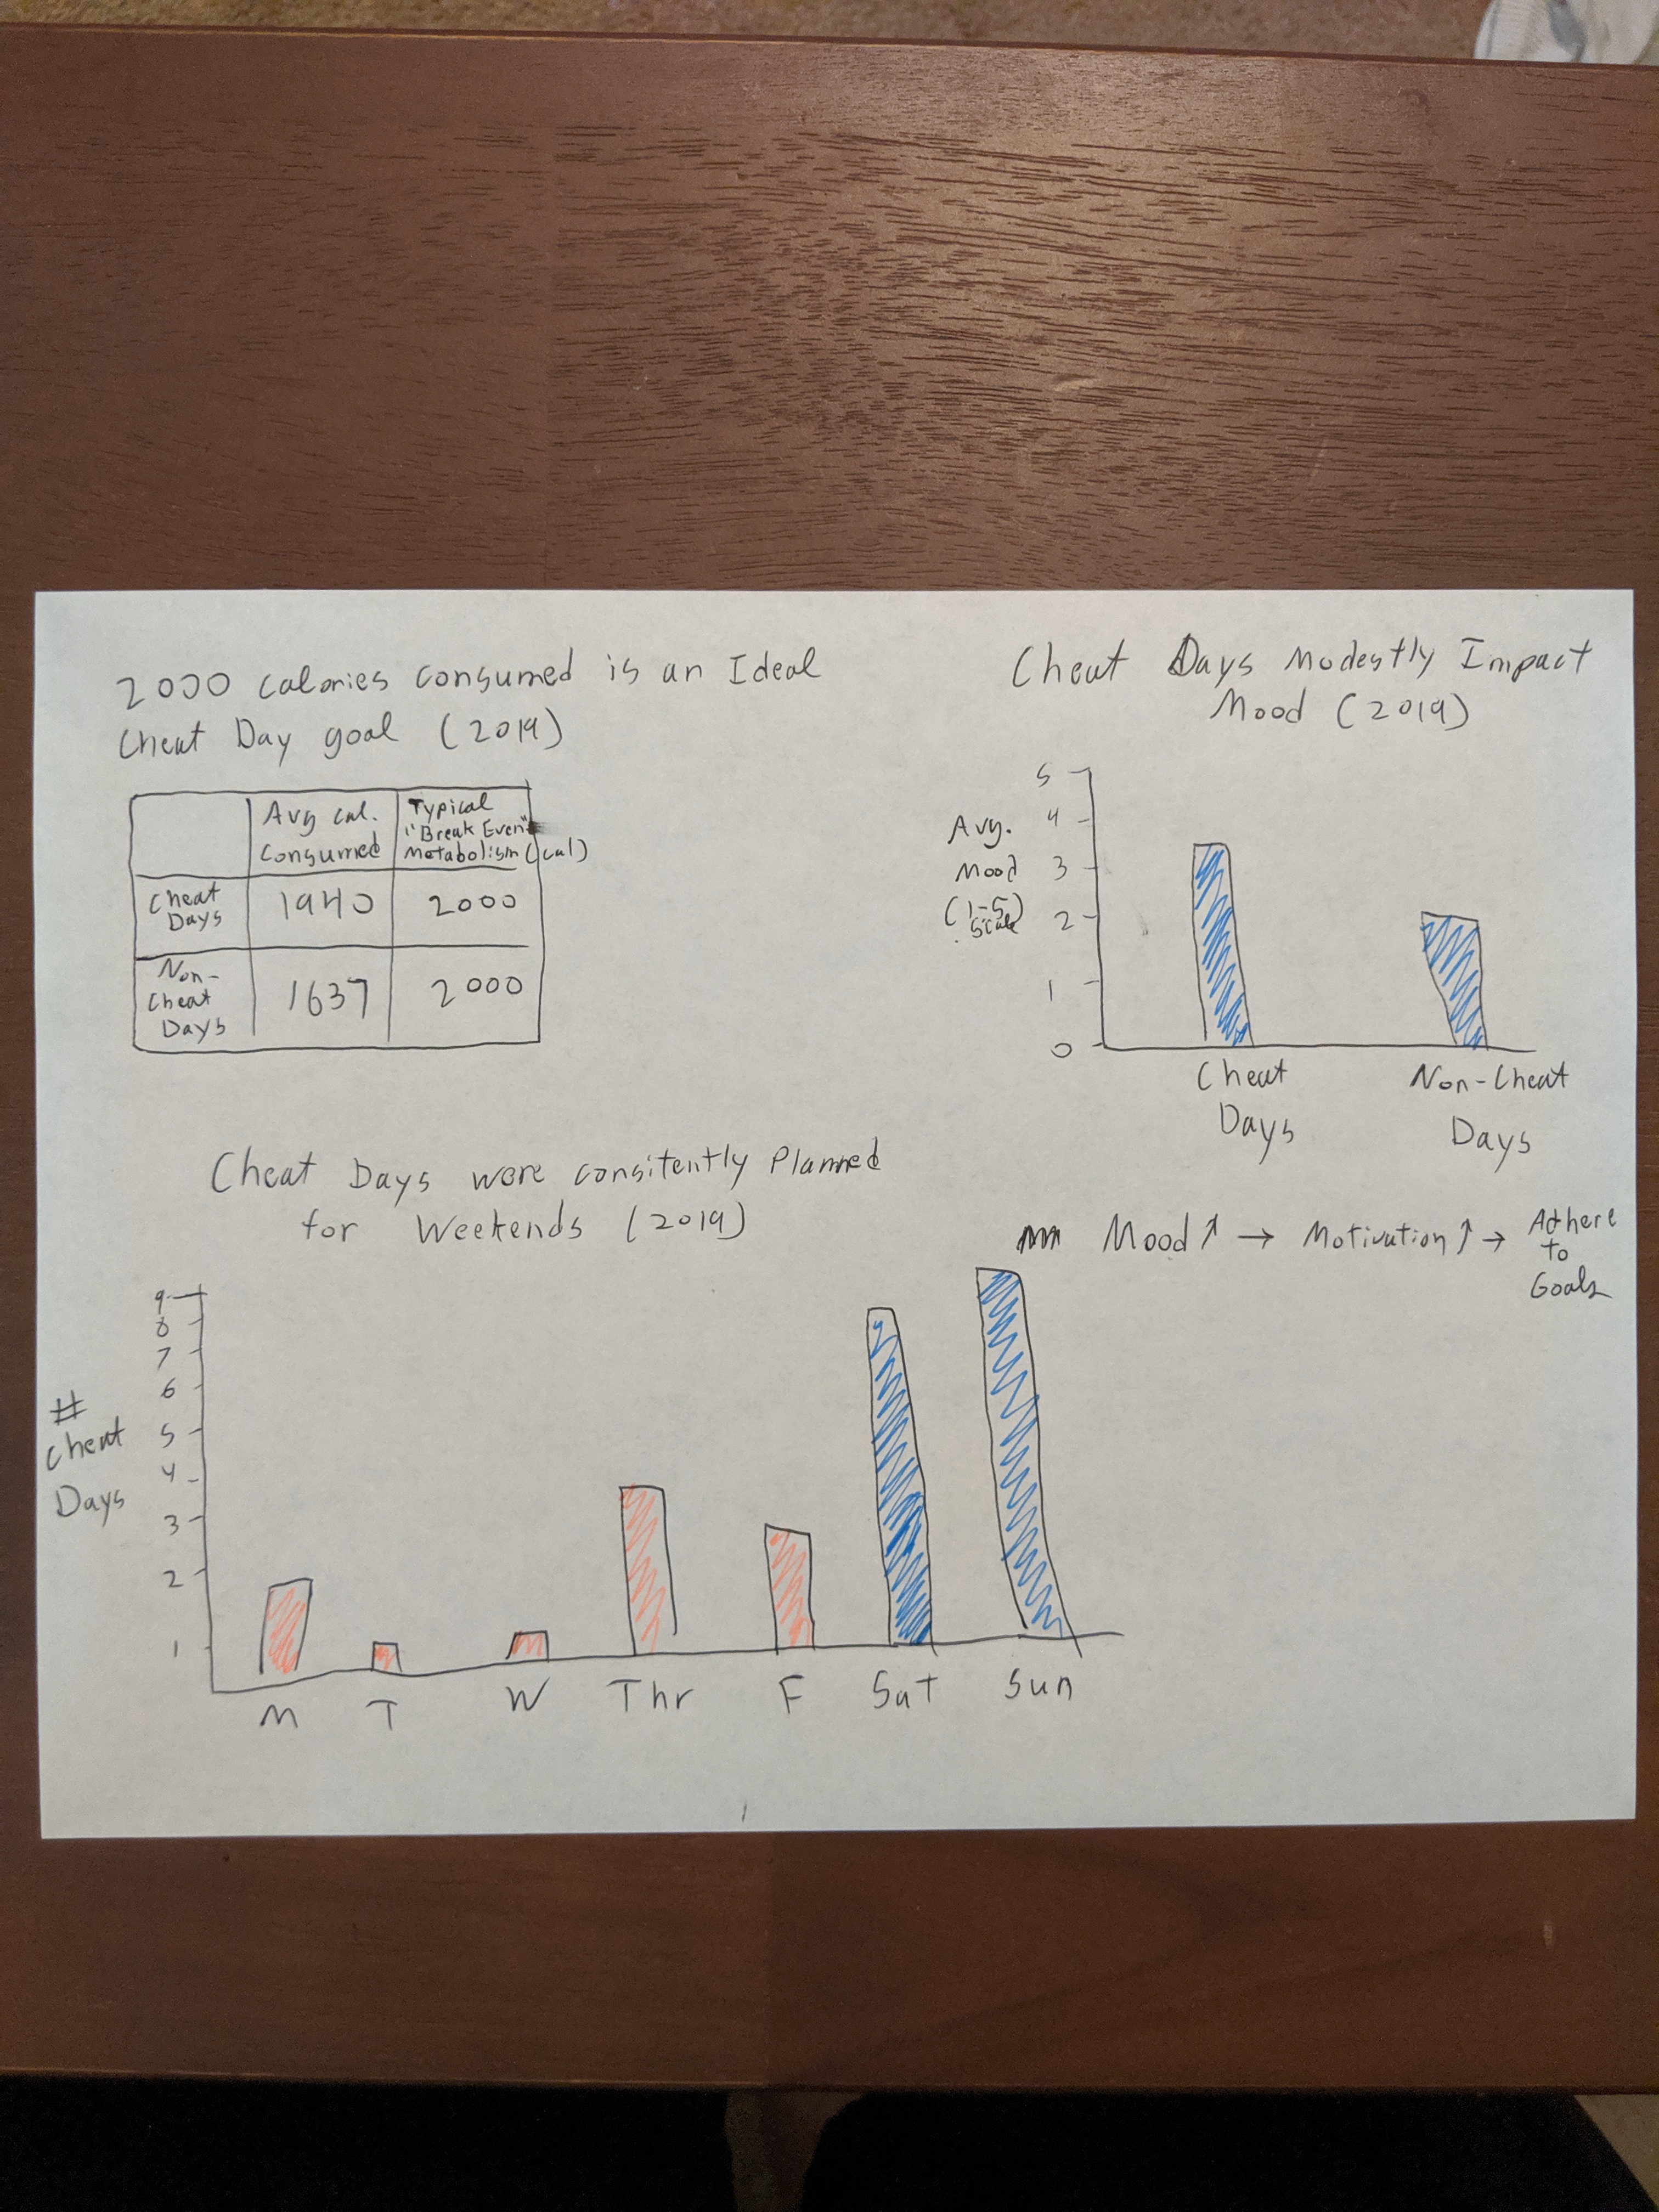 2000 calories consumed is an Ideal
Cheat Day goal (2019)
Avg cal.
Consumed
Typical
"Break Even"
Metabolism (cal)
Cheat
Days
1940
2000
Non-
Cheat
Days
1637
2000
Cheat Days Modestly Impact
Mood (2019)
Avg.
Mood
(1-5)
Scale
5
4
3
2
1
0
Cheat
Days
Non-Cheat
Days
Mood ↑ → Motivation ↑ → Adhere
to
Goals
Cheat Days were consitently Planned
for Weekends (2019)
#
Cheat
Days
9
8
7
6
5
4
3
2
1
M T W Thr F Sat Sun